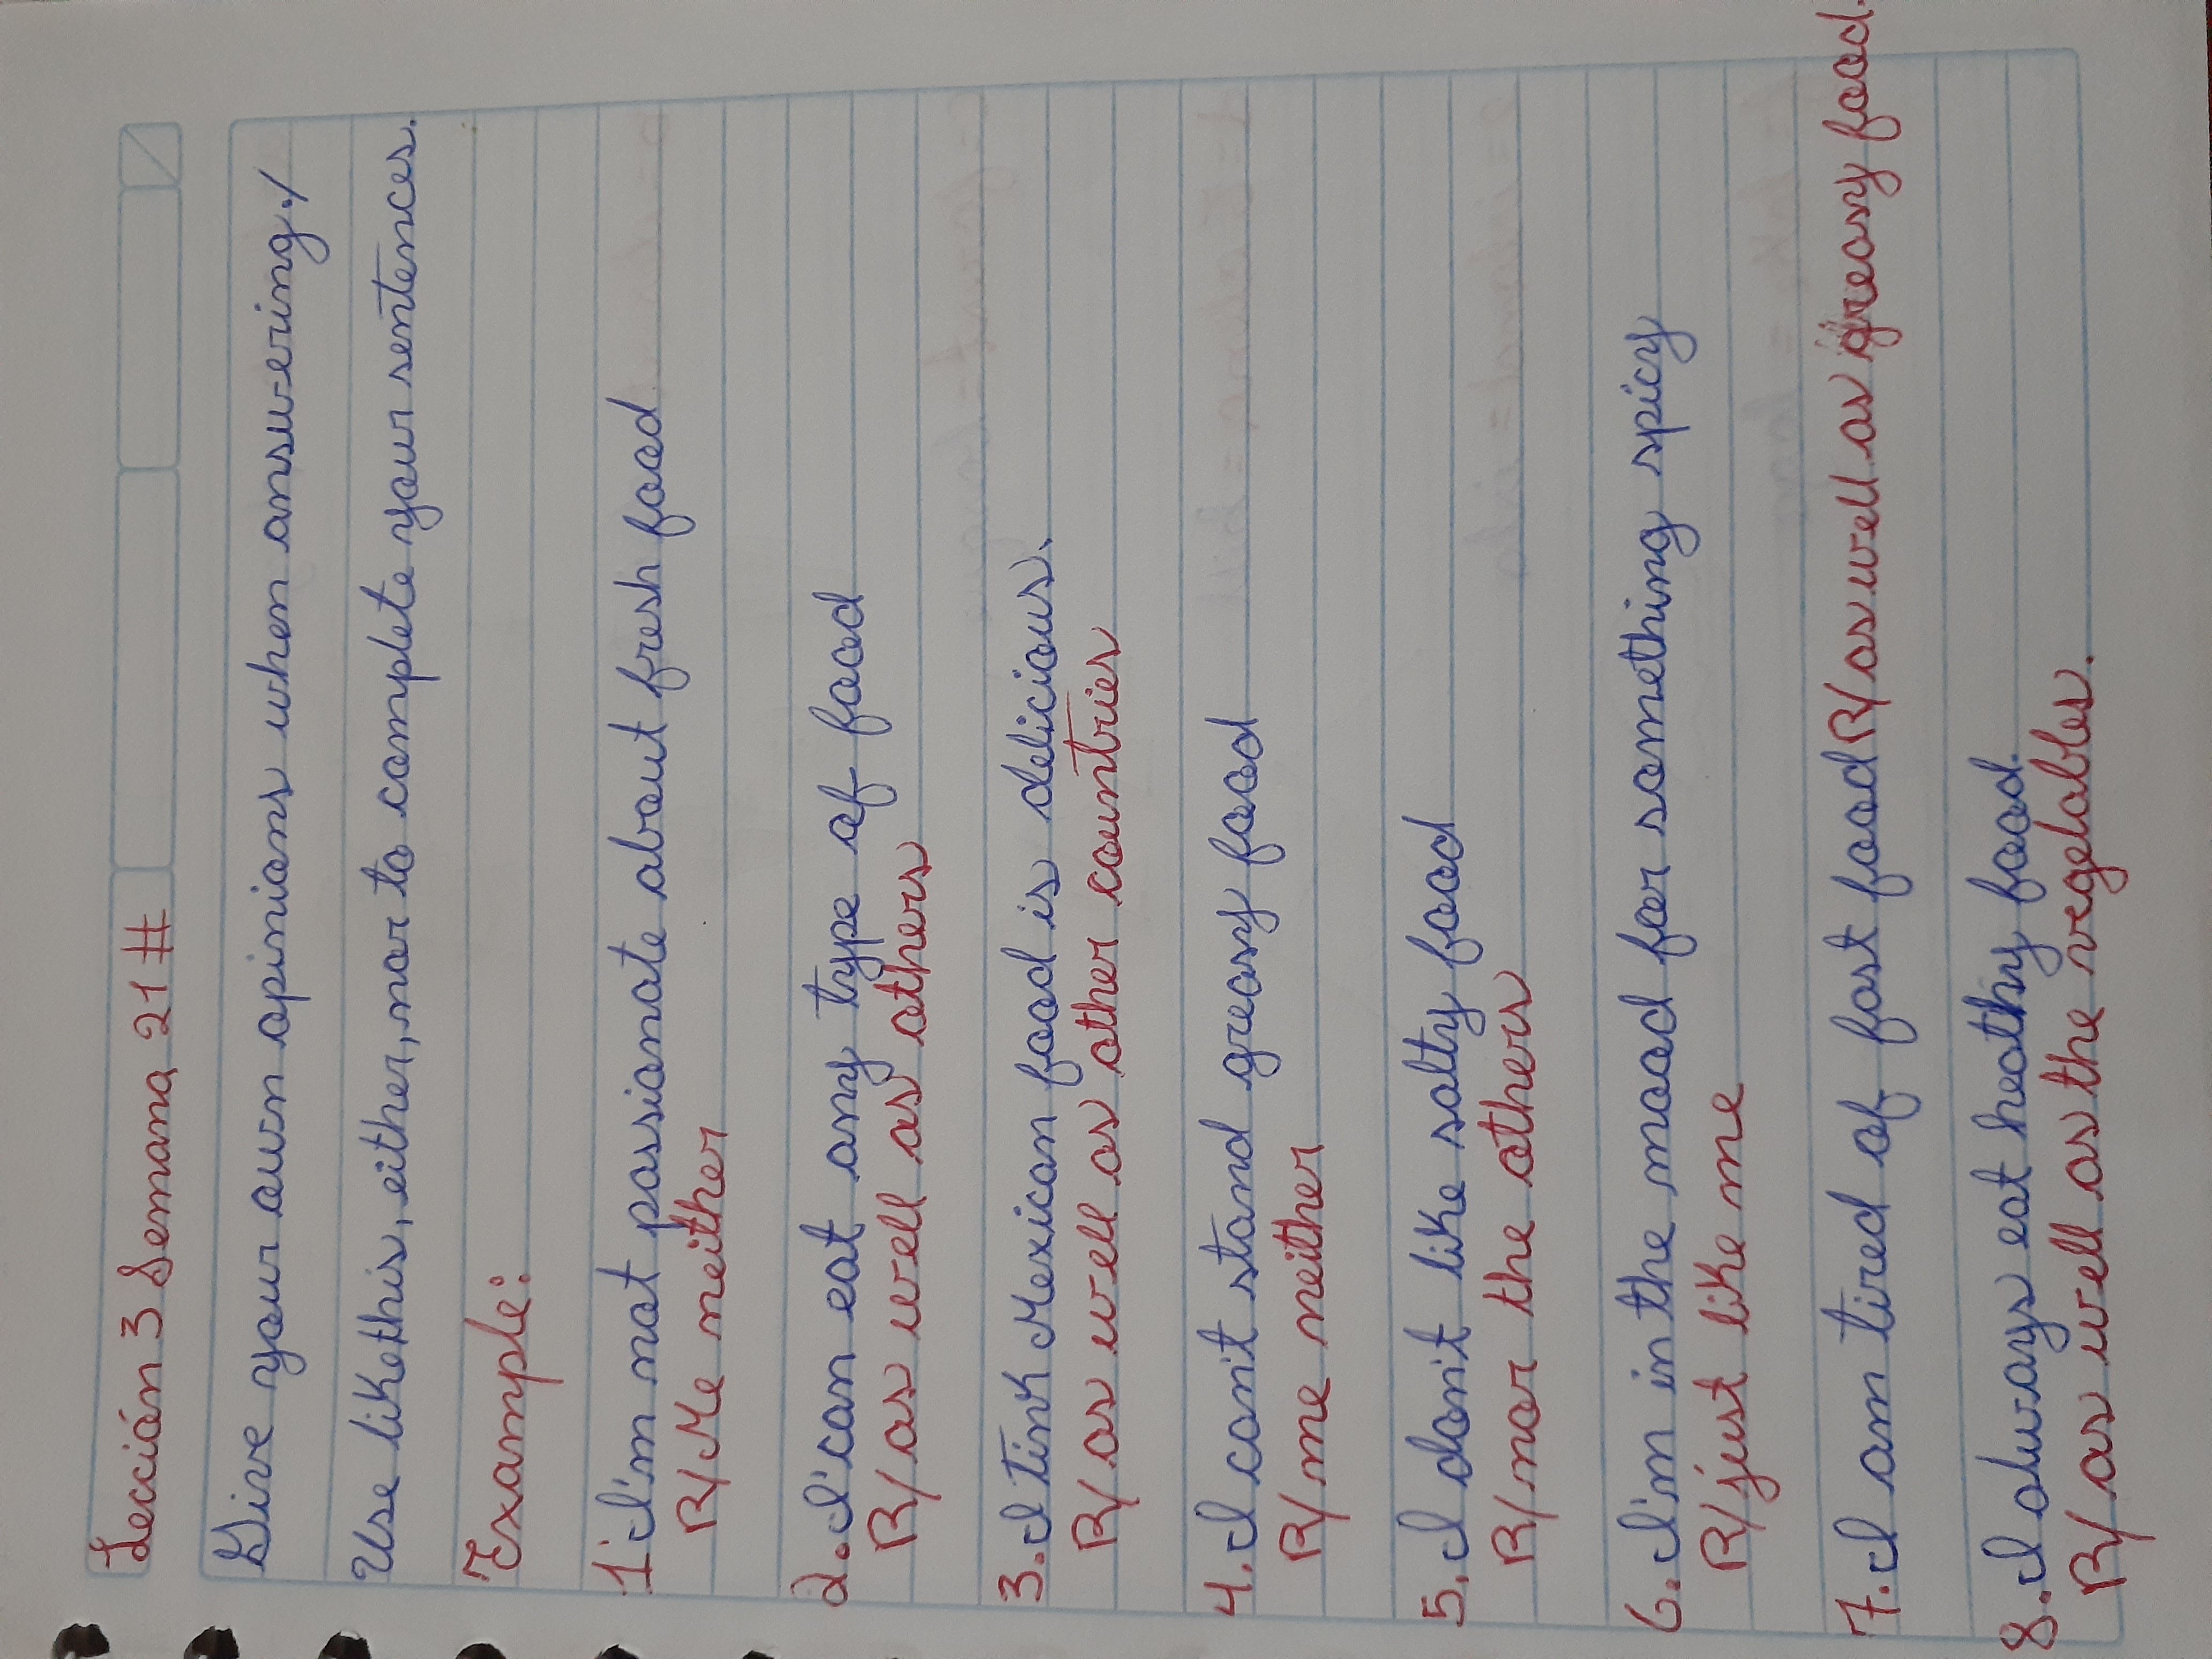 Lección 3 Semana 21#
Give your own opinions when answering./
Use like this, either, nor to complete your sentences.
Example:
1 I'm not passionate about fresh food
R/ Me neither
2. I'can eat any type of food
R/ as well as others
3. I tink Mexican food is delicious.
R/ as well as other countries
4. I can't stand greasy food
R/ me neither
5. I don't like salty food
R/ nor the others
6. I'm in the mood for something spicy
R/ just like me
7. I am tired of fast food R/ as well as greasy food.
8. I always eat heathy food.
R/ as well as the vegelables.